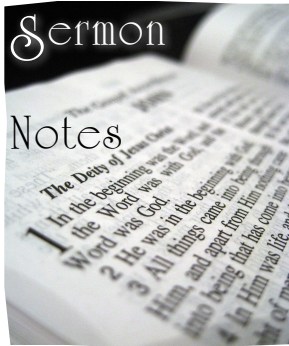 Sermon
Notes
The Deity of Jesus Christ
1 In the beginning was the Word, and
the Word was with God, and the
Word was God.
2 He was in the beginning with God
3 All things came into being
Him, and apart from Him nothing
into being that has come into
4 In Him was life, and